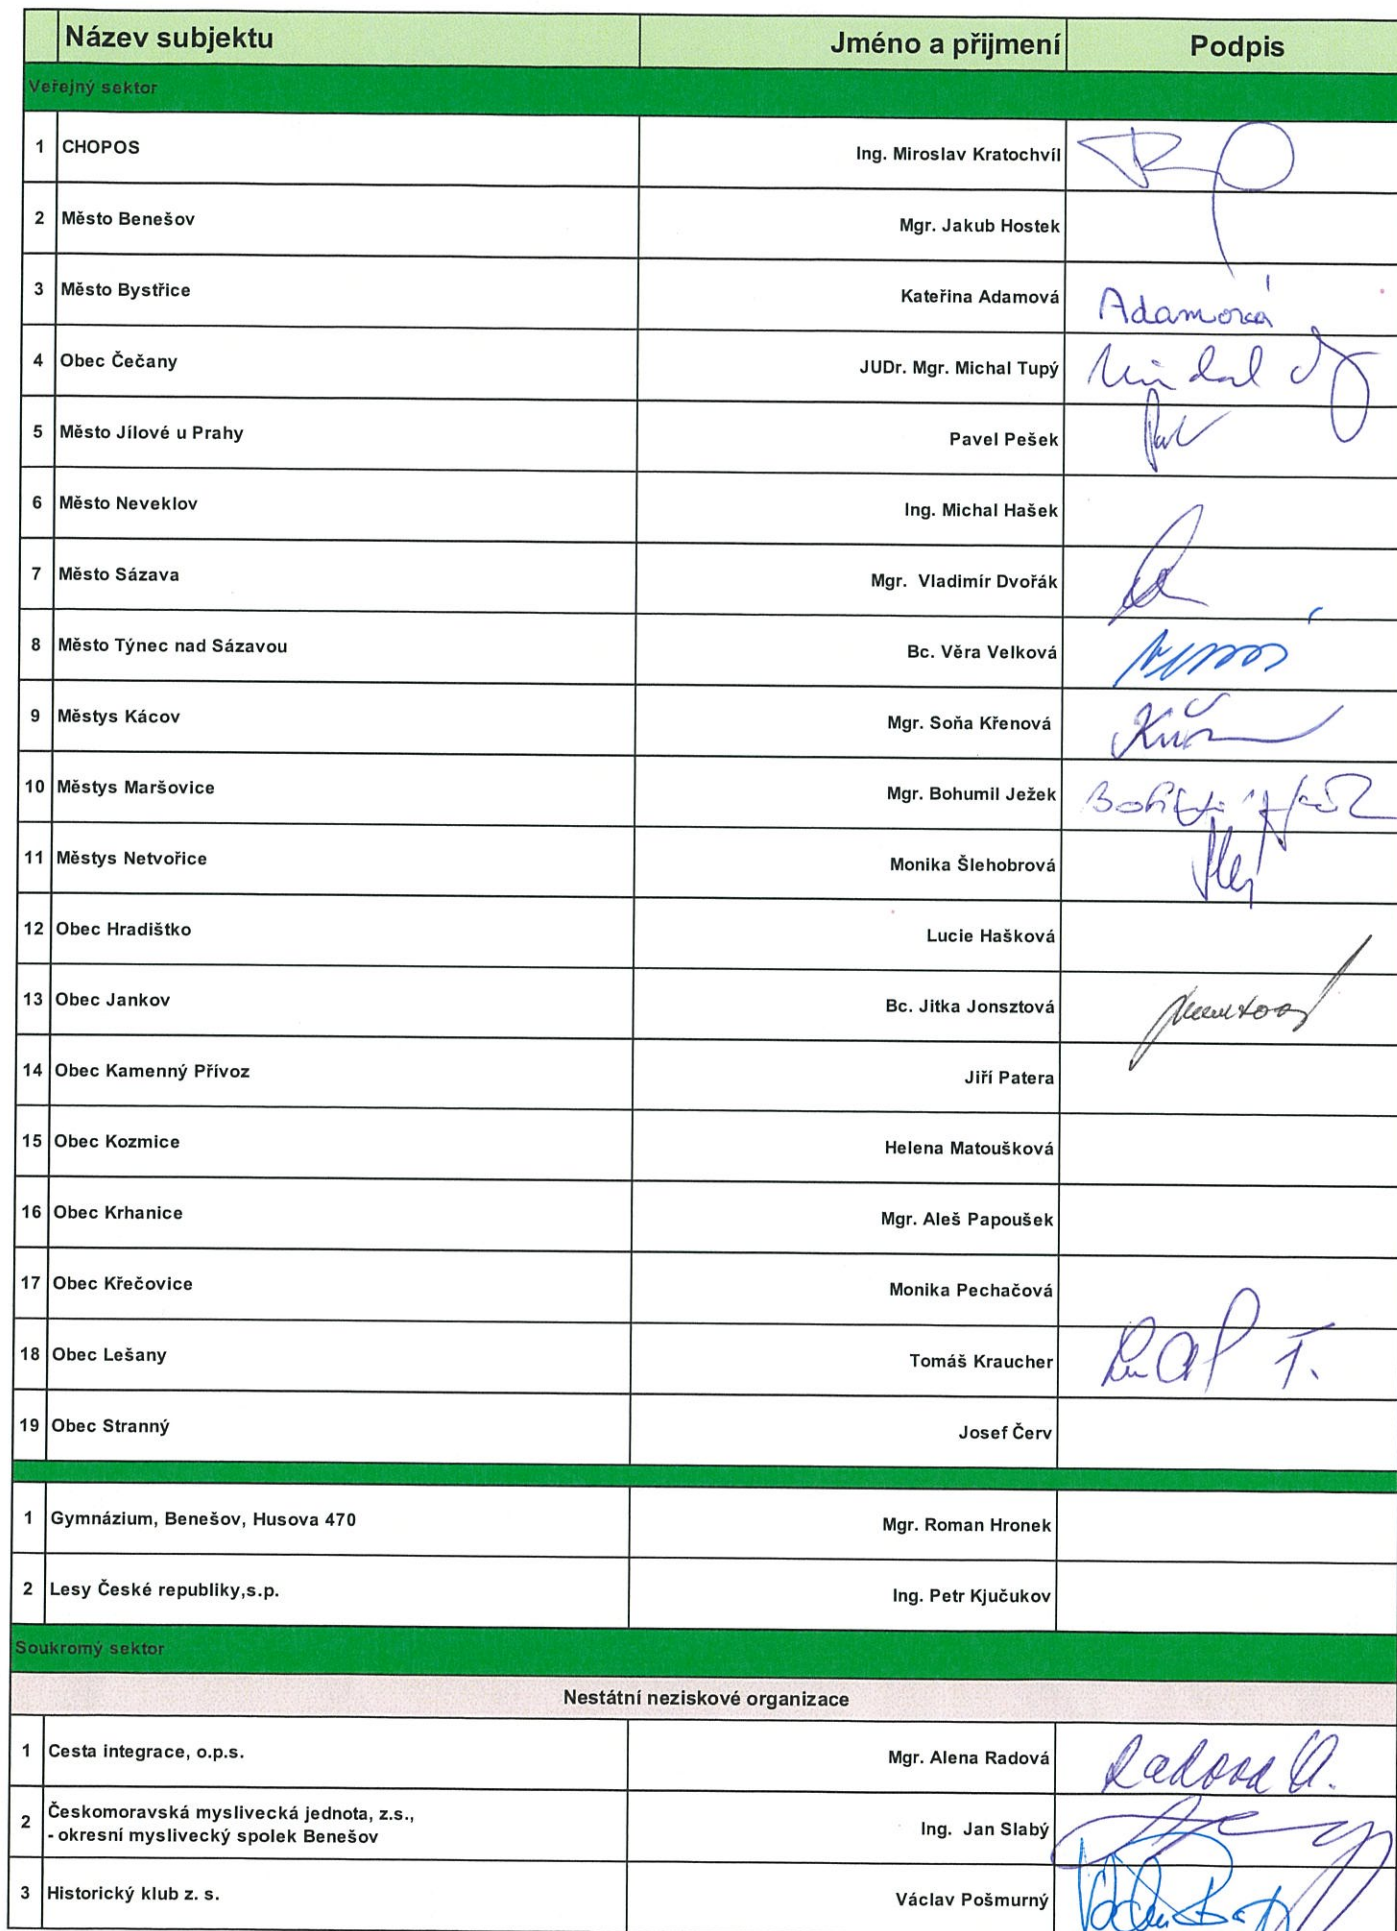 Název subjektu Jméno a přijmení Podpis
Veřejný sektor
1 CHOPOS Ing. Miroslav Kratochvíl
2 Město Benešov Mgr. Jakub Hostek
3 Město Bystřice Kateřina Adamová Adamová
4 Obec Čečany JUDr. Mgr. Michal Tupý
5 Město Jílové u Prahy Pavel Pešek
6 Město Neveklov Ing. Michal Hašek
7 Město Sázava Mgr. Vladimír Dvořák
8 Město Týnec nad Sázavou Bc. Věra Velková
9 Městys Kácov Mgr. Soňa Křenová
10 Městys Maršovice Mgr. Bohumil Ježek
11 Městys Netvořice Monika Šlehobrová
12 Obec Hradištko Lucie Hašková
13 Obec Jankov Bc. Jitka Jonsztová
14 Obec Kamenný Přívoz Jiří Patera
15 Obec Kozmice Helena Matoušková
16 Obec Krhanice Mgr. Aleš Papoušek
17 Obec Křečovice Monika Pechačová
18 Obec Lešany Tomáš Kraucher
19 Obec Stranný Josef Červ
1 Gymnázium, Benešov, Husova 470 Mgr. Roman Hronek
2 Lesy České republiky,s.p. Ing. Petr Kjučukov
Soukromý sektor
Nestátní neziskové organizace
1 Cesta integrace, o.p.s. Mgr. Alena Radová Radová A.
2 Českomoravská myslivecká jednota, z.s.,
- okresní myslivecký spolek Benešov Ing. Jan Slabý
3 Historický klub z. s. Václav Pošmurný